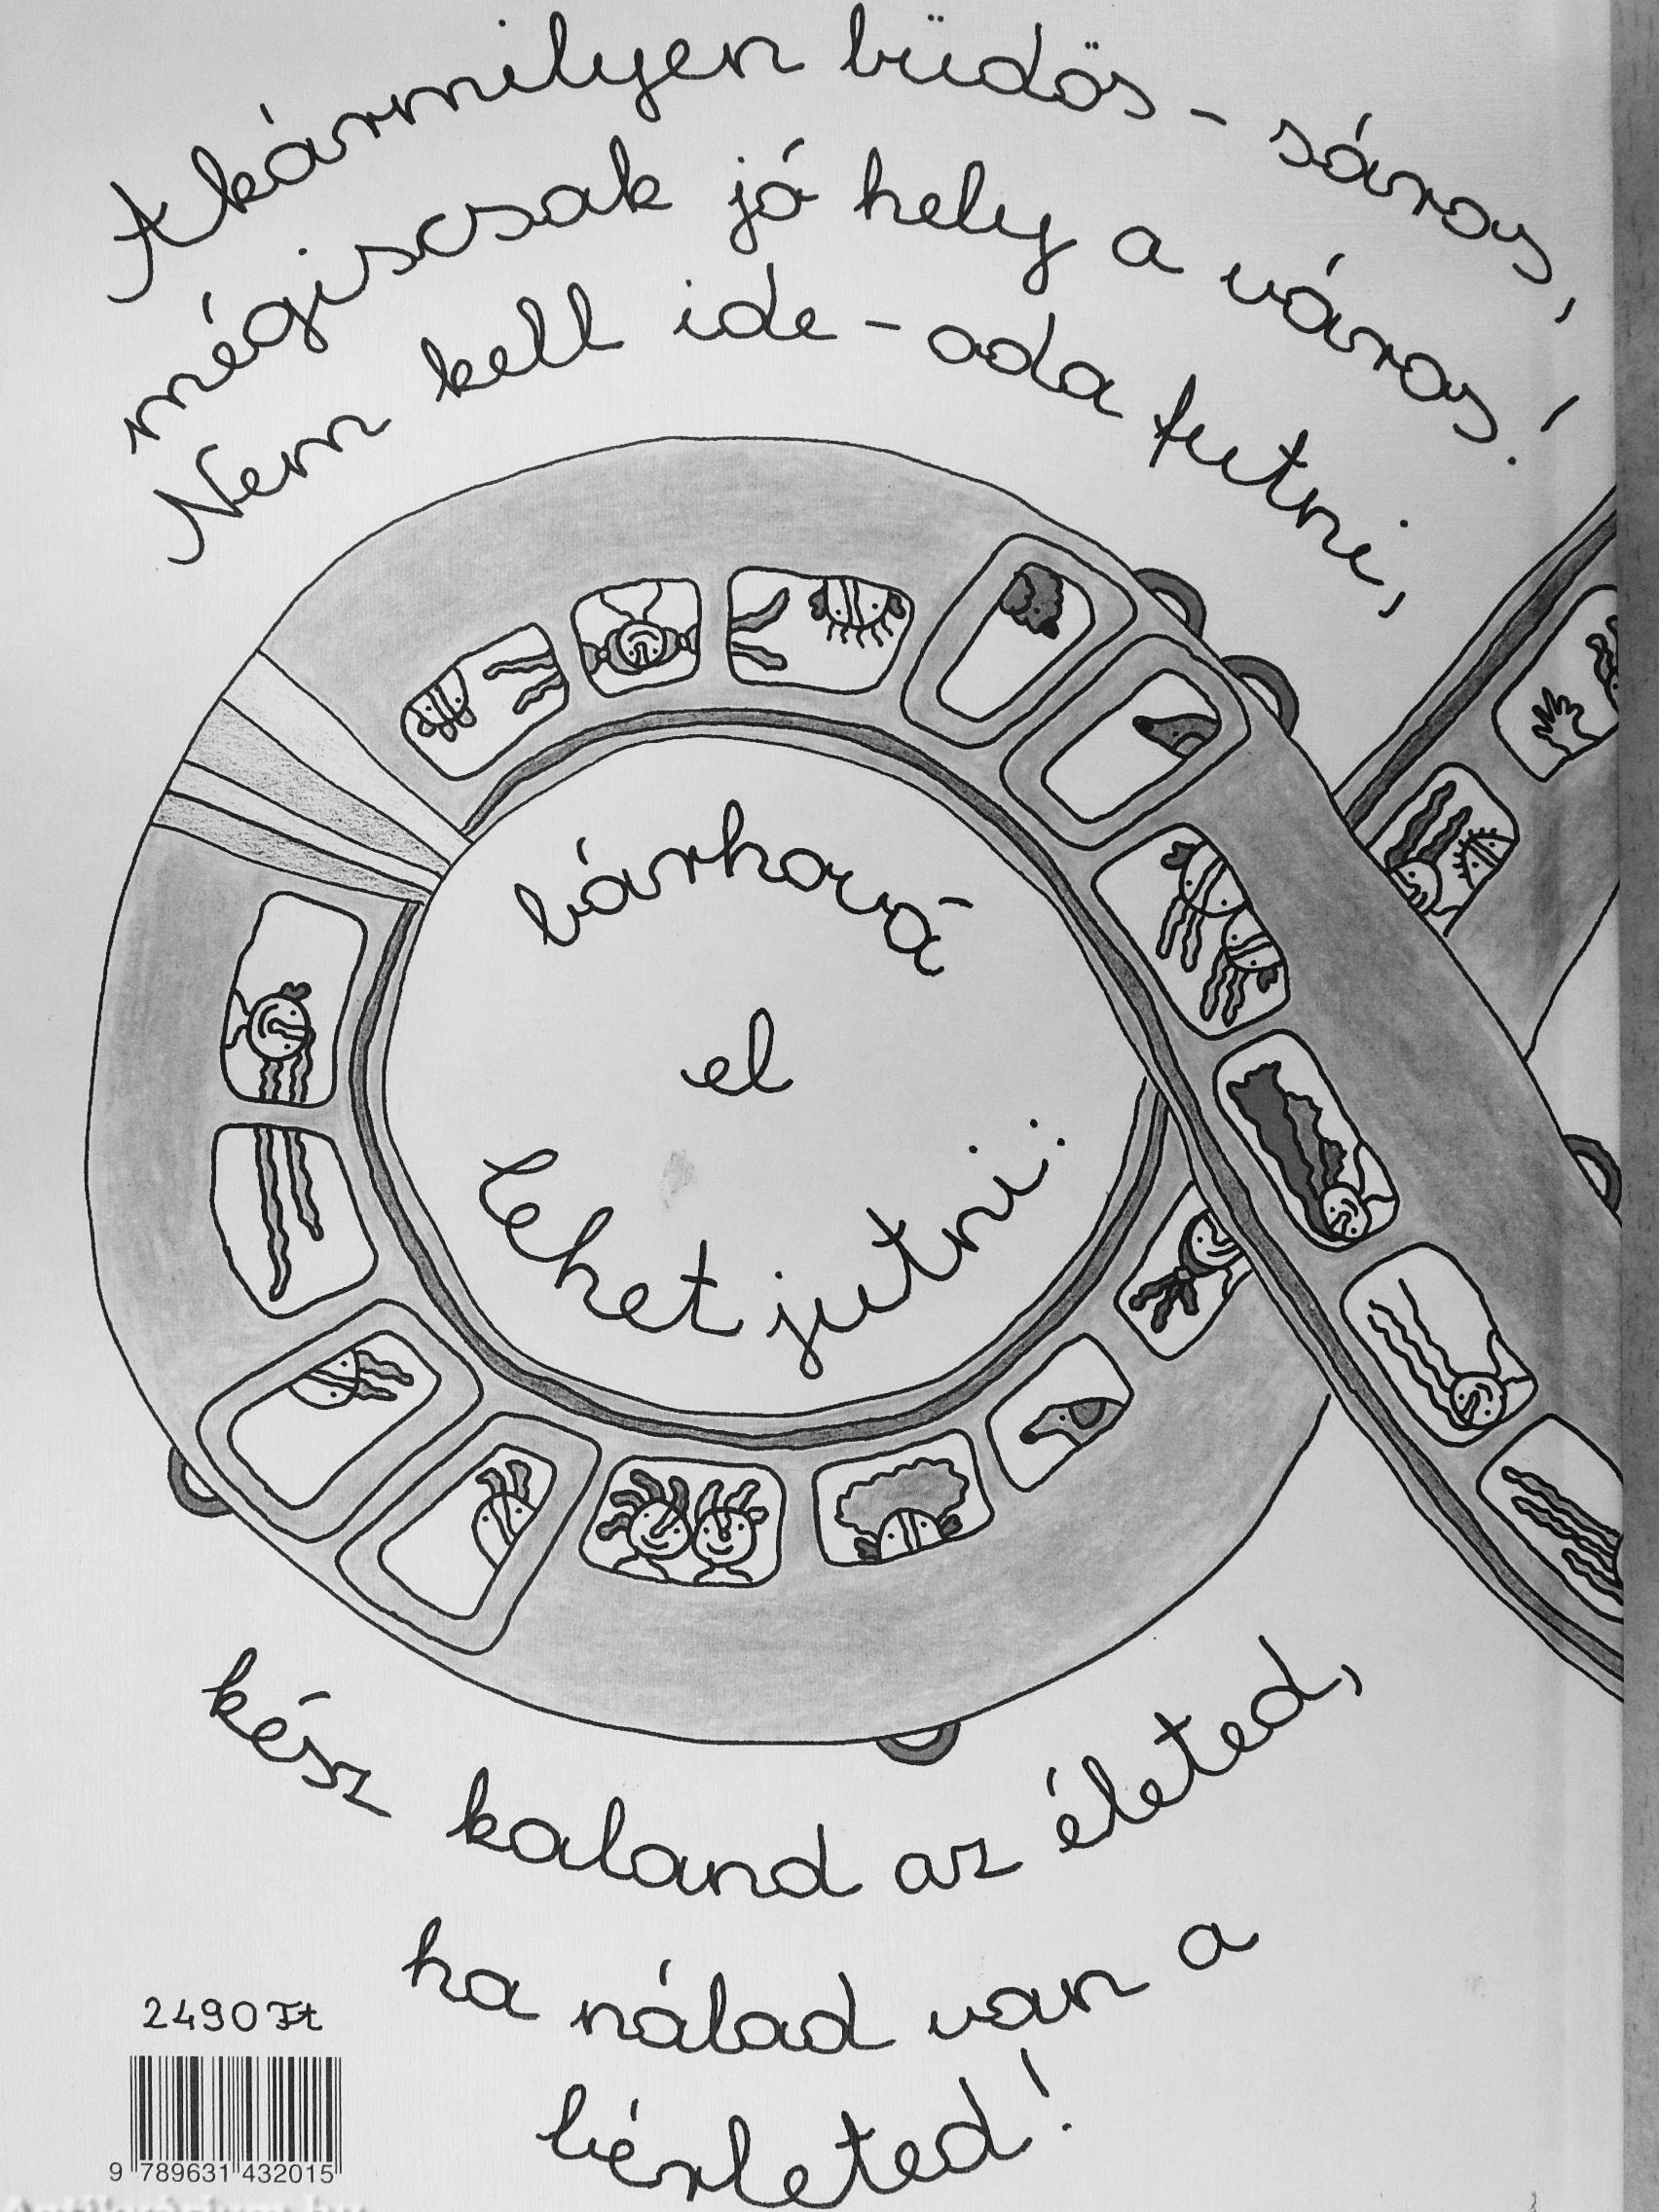 Akármilyen büdös-sáros,
mégiscsak jó hely a város!
Nem kell ide-oda futni,
bárhová
el
lehet jutni:
kész kaland az életed,
ha nálad van a
bérleted!
2490 Ft
9 789631 432015